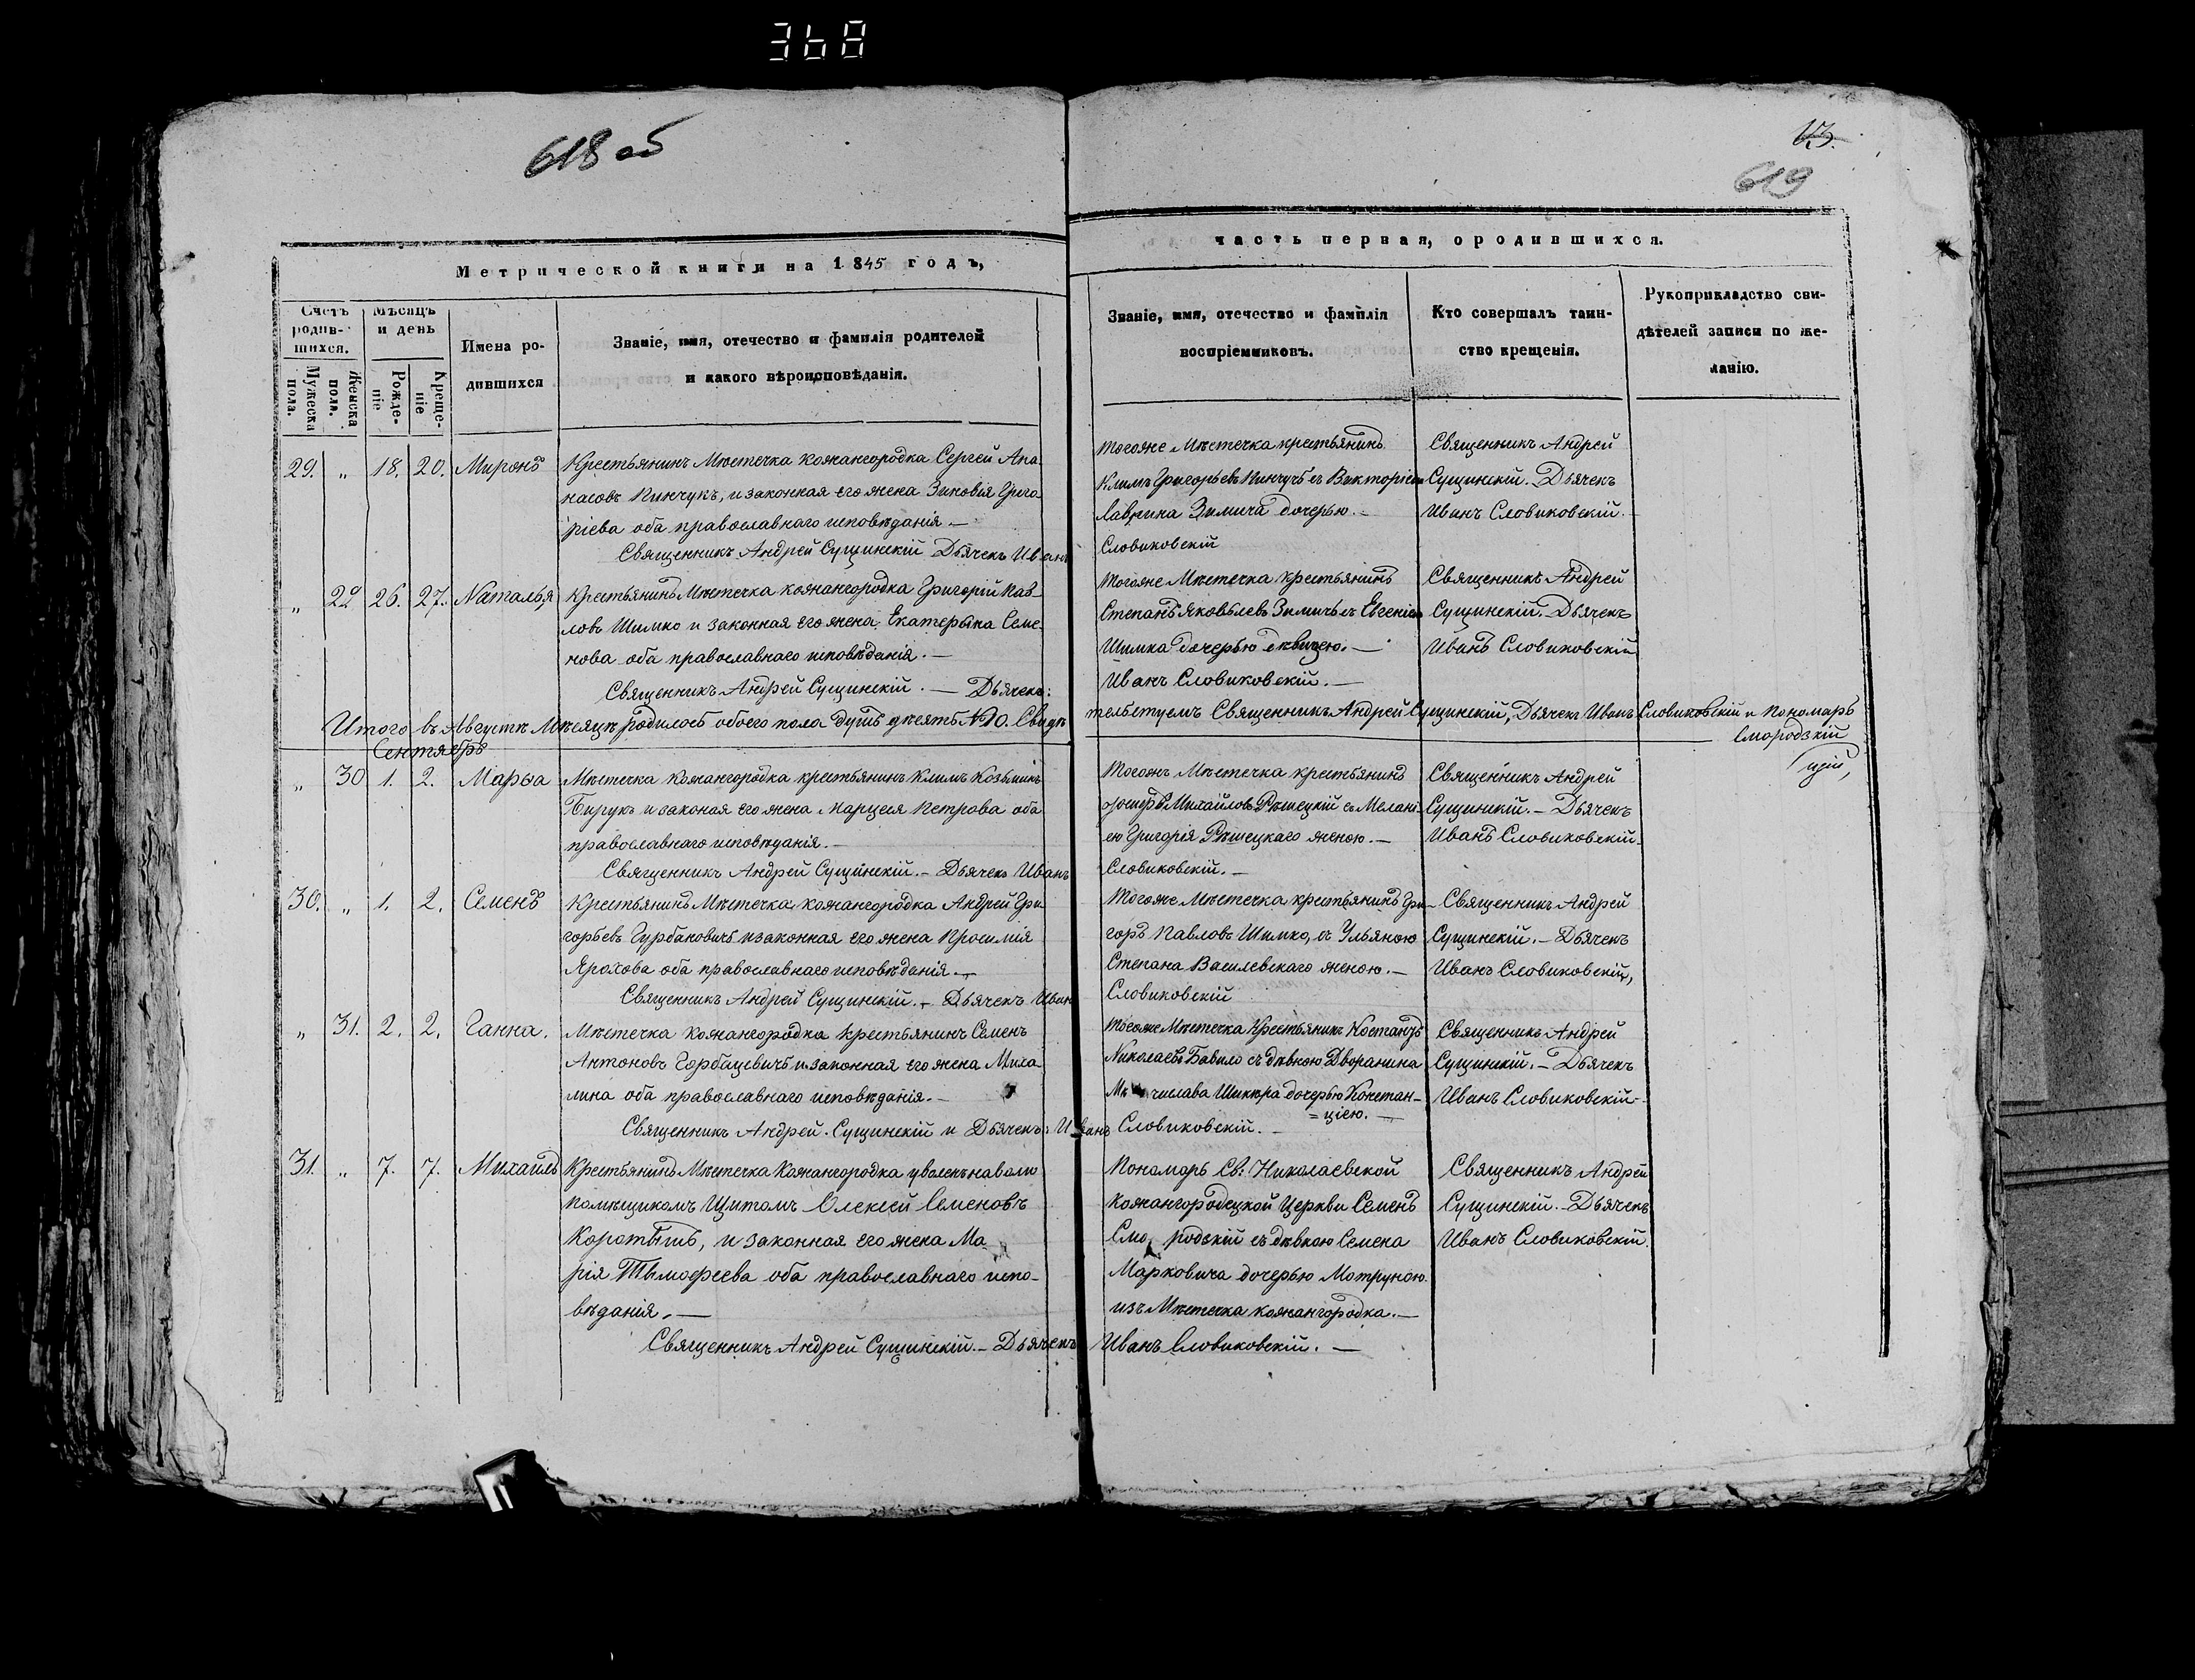 368
618 об
13.
619
Метрической книги на 1845 годъ,
Счетъ родив-шихся.
Мужеска пола.
Женска пола.
Мѣсяцъ и день
Рожде-ніе
Креще-ніе
Имена ро-
дившихся
Званіе, имя, отечество и фамилія родителей
и какого вѣроисповѣданія.
29. „ 18. 20. Миронъ
Крестьянинъ Мѣстечка Кожангородка Сергей Апа-
насовъ Пинчукъ, и законная его жена Зиновія Григо-
ріева оба православнаго исповѣданія. —
Священникъ Андрей Сущинскій Дьячекъ Иванъ
„ 29 26. 27. Наталья
Крестьянинъ Мѣстечка Кожангородка Григорій Пав-
ловъ Шимко и законная его жена Екатерына Семе-
нова оба православнаго исповѣданія. —
Священникъ Андрей Сущинскій. — Дьячекъ:
Итого въ Августѣ Мѣсяцѣ родилось обоего пола душъ десять №10. Свидѣ
Сентябрь
„ 30 1. 2. Марьа
Мѣстечка Кожангородка крестьянинъ Климъ Козьминъ
Бирукъ и законая его жена Марцеля Петрова оба
православнаго исповѣданія. —
Священникъ Андрей Сущинскій. — Дьячекъ Иванъ
30. „ 1. 2. Семенъ
Крестьянинъ Мѣстечка Кожангородка Андрей Гри-
горьевъ Гурбановичъ и законная его жена Просимія
Ярохова оба православнаго исповѣданія. —
Священникъ Андрей Сущинскій. — Дьячекъ Иван
„ 31. 2. 2. Ганна.
Мѣстечка Кожангородка крестьянинъ Семенъ
Антоновъ Горбацевичъ и законная его жена Миха-
лина оба православнаго исповѣданія. —
Священникъ Андрей. Сущинскій и Дьячекъ: Иванъ
31. „ 7. 7. Михаилъ
Крестьянинъ Мѣстечка Кожангородка уволенъ наволю
помѣщикомъ Щитомъ Олексей Семеновъ
Коротышъ, и законная его жена Ма-
рія Тымофеева оба православнаго испо-
вѣданія. —
Священникъ Андрей Сущинскій. — Дьячекъ
часть первая, о родившихся.
Званіе, имя, отечество и фамилія
воспріемниковъ.
Кто совершалъ таин-
ство крещенія.
Рукоприкладство сви-
дѣтелей записи по же-
ланію.
тогоже Мѣстечка крестьянинъ
Климъ Григорьевъ Пинчукъ съ Викторіею
Лаврина Зимича дочерью. —
Словиковскій
Священникъ Андрей
Сущинскій. Дьячекъ
Иванъ Словиковскій.
тогоже Мѣстечка крестьянинъ
Степанъ Яковьлевъ Зимичь съ Евгеніею
Шимка дочерью дѣвицею. —
Иванъ Словиковскій. —
Священникъ Андрей
Сущинскій. Дьячекъ
Иванъ Словиковскій
тельствуемъ Священникъ Андрей Сущинскій, Дьячекъ Иванъ Словиковскій и Пономарь
Смородзкій
Тогожъ Мѣстечка крестьянинъ
Михайловъ Рѣшецкій съ Мелані-
ею Григорія Рѣшецкаго женою. —
Словиковскій. —
Священникъ Андрей
Сущинскій. — Дьячекъ
Иванъ Словиковскій.
Тогоже Мѣстечка крестьянинъ Гри-
горъ Павловъ Шимко, съ Ульяною
Степана Василевскаго женою. —
Словиковскій
Священникъ Андрей
Сущинскій. — Дьячекъ
Иванъ Словиковскій,
Тогоже Мѣстечка Крестьянинъ
Николаевъ Бавило съ дѣвкою Дворанина
дочерью Констан-
=ціею. —
Словиковскій. —
Священникъ Андрей
Сущинскій. — Дьячекъ
Иванъ Словиковскій
Пономарь Св: Николаевской
Кожангородецкой Церкви Семенъ
Смородскій съ дѣвкою Семена
Марковича дочерью Мотруною
изъ Мѣстечка Кожангородка. —
Иванъ Словиковскій. —
Священникъ Андрей
Сущинскій. — Дьячекъ
Иванъ Словиковскій.